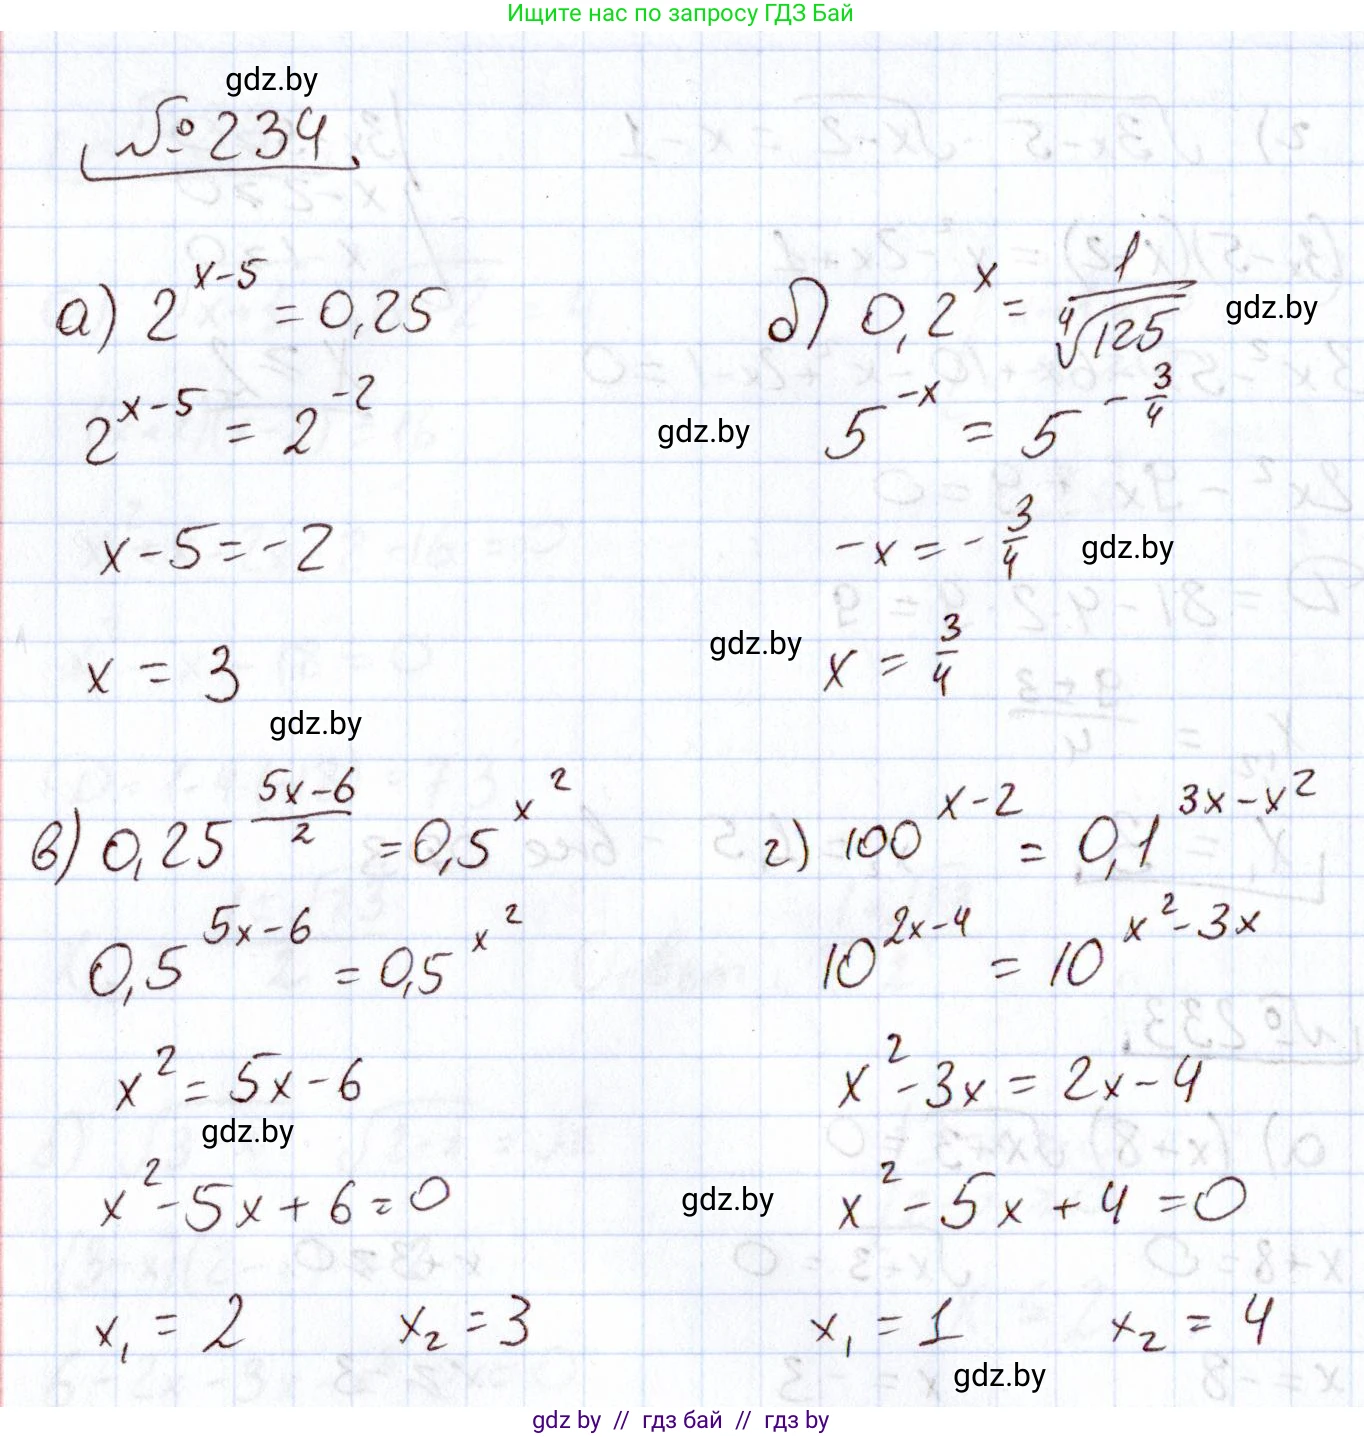 Ищите нас по запросу ГДЗ Бай
gdz.by
№234
а) 2^{x-5} = 0,25
2^{x-5} = 2^{-2}
x-5 = -2
x = 3
gdz.by
б) 0,2^x = 1/\sqrt[4]{125}
gdz.by
gdz.by
5^{-x} = 5^{-3/4}
-x = -3/4
gdz.by
gdz.by
x = 3/4
в) 0,25^{(5x-6)/2} = 0,5^{x^2}
0,5^{5x-6} = 0,5^{x^2}
x^2 = 5x-6
gdz.by
x^2-5x+6=0
x_1 = 2 x_2 = 3
г) 100^{x-2} = 0,1^{3x-x^2}
10^{2x-4} = 10^{x^2-3x}
x^2-3x = 2x-4
gdz.by
x^2-5x+4=0
x_1 = 1 x_2 = 4
gdz.by
gdz by // гдз бай // гдз by